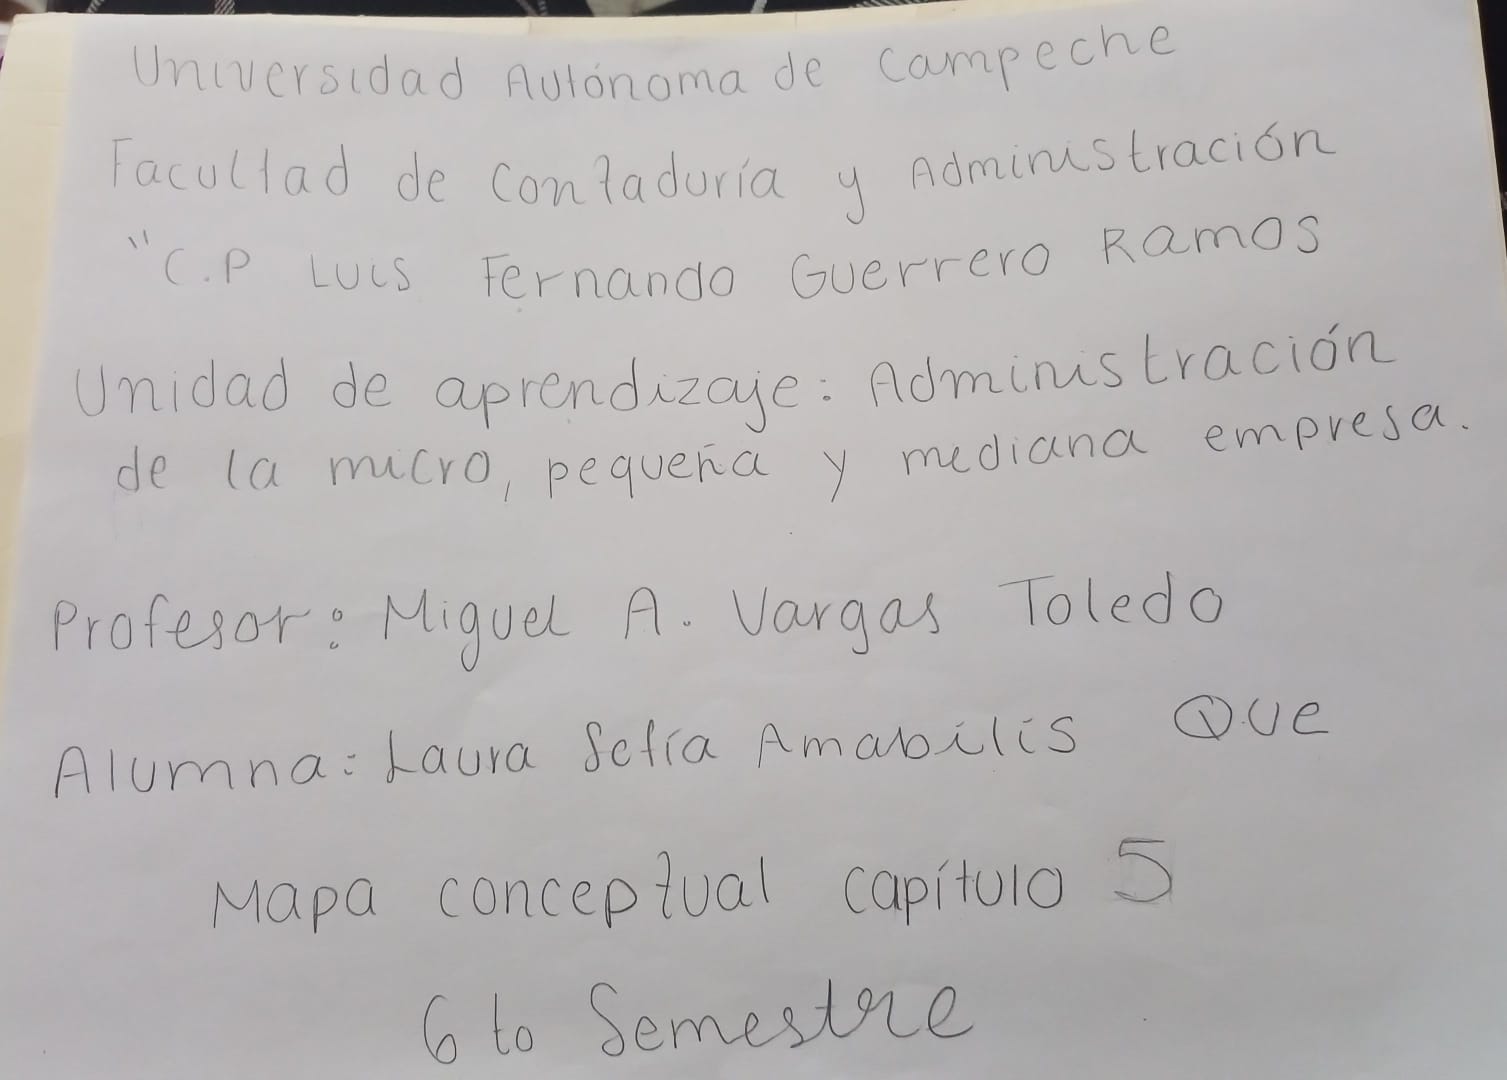 Universidad Autónoma de Campeche
Facultad de Contaduría y Administración
"C.P Luis Fernando Guerrero Ramos
Unidad de aprendizaje: Administración
de la micro, pequeña y mediana empresa.
Profesor: Miguel A. Vargas Toledo
Alumna: Laura Sofía Amabilis Que
Mapa conceptual capítulo 5
6 to Semestre